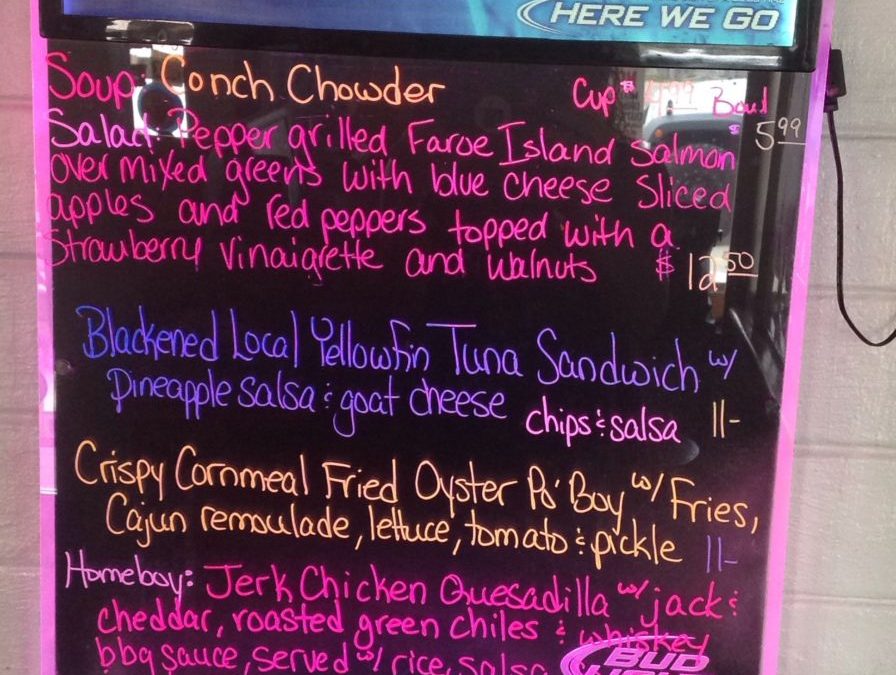 HERE WE GO
Soup: Conch Chowder Cup $ Bowl
$ 5.99
Salad: Pepper grilled Faroe Island Salmon
over mixed greens with blue cheese Sliced
apples and red peppers topped with a
Strawberry Vinaigrette and Walnuts $12.50
Blackened Local Yellowfin Tuna Sandwich w/
Pineapple salsa & goat cheese chips & salsa 11-
Crispy Cornmeal Fried Oyster Po' Boy w/ Fries,
Cajun remoulade, lettuce, tomato & pickle 11-
Homeboy: Jerk Chicken Quesadilla w/ jack &
cheddar, roasted green chiles & whiskey
bbq sauce, served w/ rice, salsa
BUD